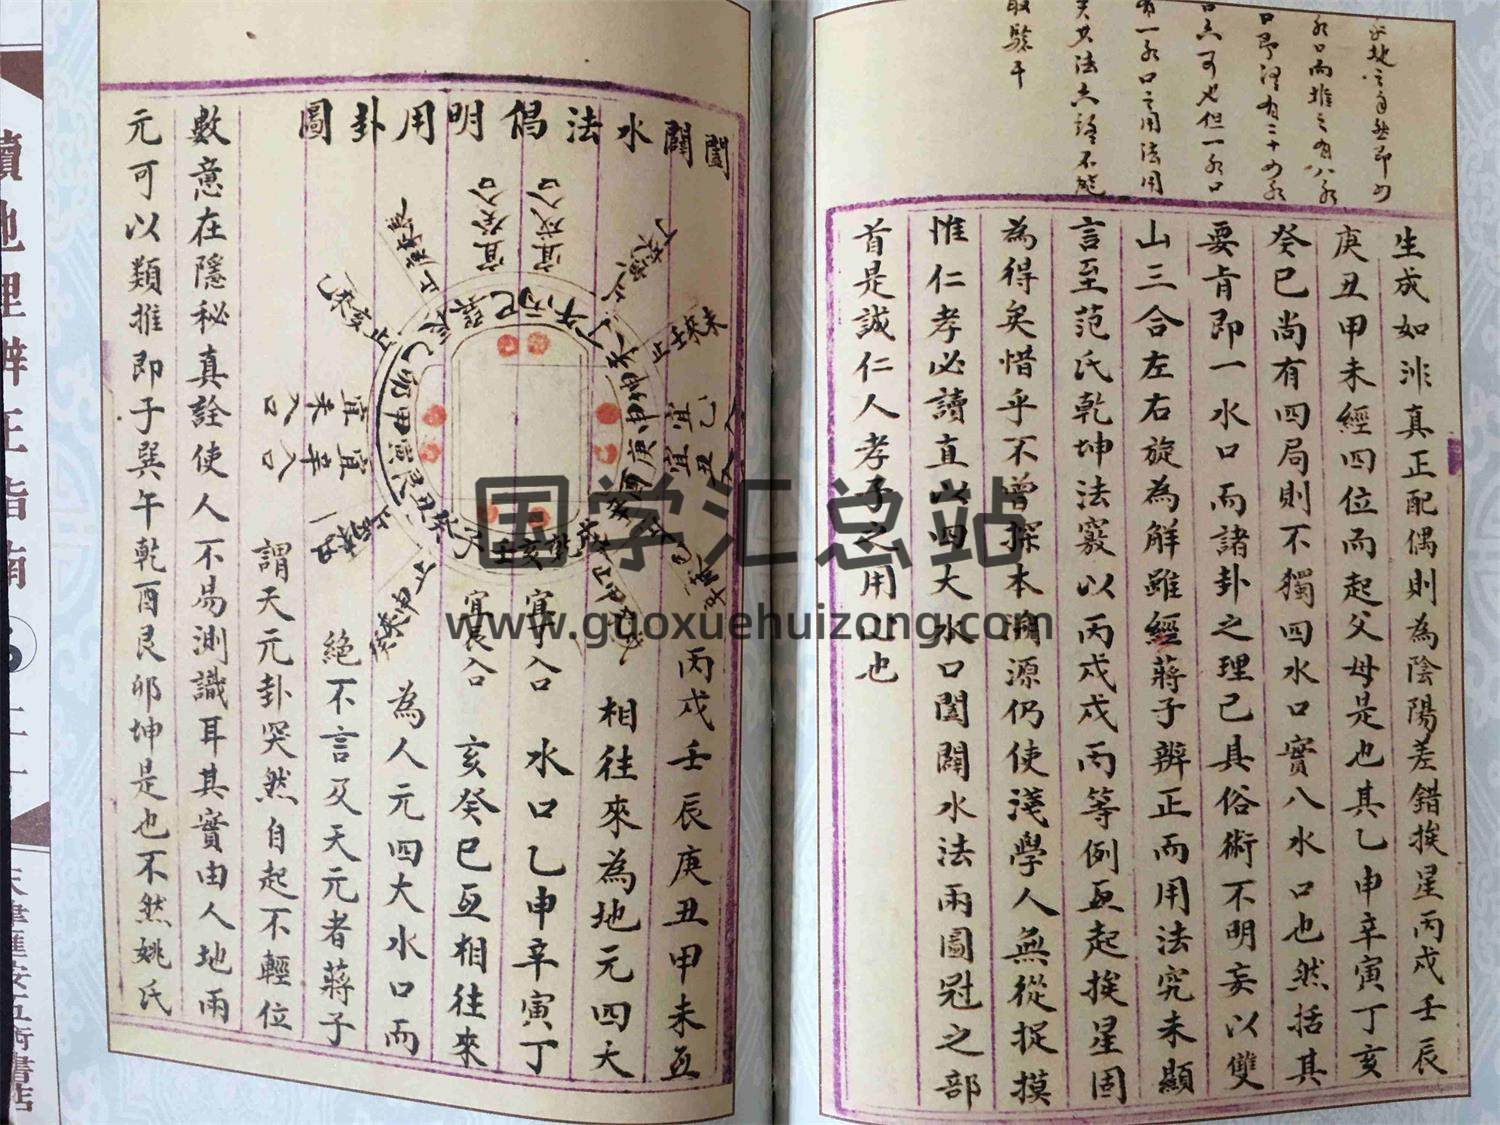 生成如非真正配偶則為陰陽差錯挨星丙戌壬辰
庚丑甲未經四位而起父母是也其乙申辛寅丁亥
癸巳尚有四局則不獨四水口實八水口也然括其
要肯即一水口而諸卦之理已具俗術不明妄以雙
山三合左右旋為解雖經蔣子辨正而用法究未顯
言至范氏乾坤法竅以丙戌戌丙等例互起挨星固
為得矣惜乎不曾探本溯源仍使淺學人無從捉摸
惟仁孝必讀直以四大水口闔闢水法兩圖冠之部
首是誠仁人孝子之用心也
闔闢水法倡明用卦圖
宜戌入口
宜癸入口
宜未入口
宜辛入口
丙戌壬辰庚丑甲未互
相往來為地元四大
水口乙申辛寅丁
亥癸巳互相往來
為人元四大水口而
絕不言及天元者蔣子
謂天元卦突然自起不輕位
數意在隱秘真詮使人不易測識耳其實由人地兩
元可以類推即子巽午乾酉艮卯坤是也不然姚氏
國学汇总站
www.guoxuehuizong.com
續地理辨正指南
天津匯安五術書店